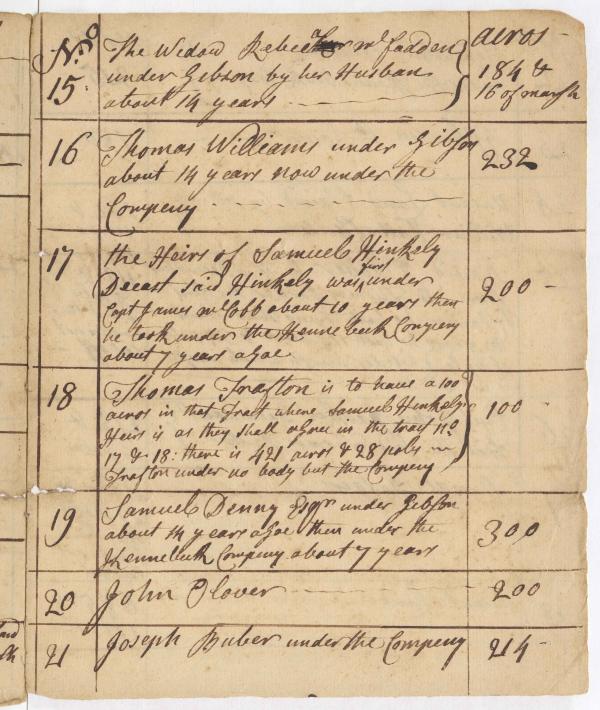 No acros
15 The Widow Rebecker mcfadden
under Gibson by her Husban 184 &
about 14 years 16 of marsh
16 Thomas Williams under Gibson
about 14 years now under the 232
Compeny
17 the Heirs of Samuel Hinkely
Decest said Hinkely was first under
Capt James mcCobb about 10 years then 200
he took under the Kennebeck Compeny
about 7 years agoe
18 Thomas Trafton is to have a 100
acros in that Tract where Samuel Hinkelys
Heirs is as they shall agree in the tract no 100
17 & 18: there is 421 acros & 28 pols
Trafton under no body but the Compeny
19 Samuel Denny Esqr under Gibson
about 14 years agoe then under the 300
Kennebeck Compeny about 7 years
20 John Olover 200
21 Joseph Buber under the Compeny 214